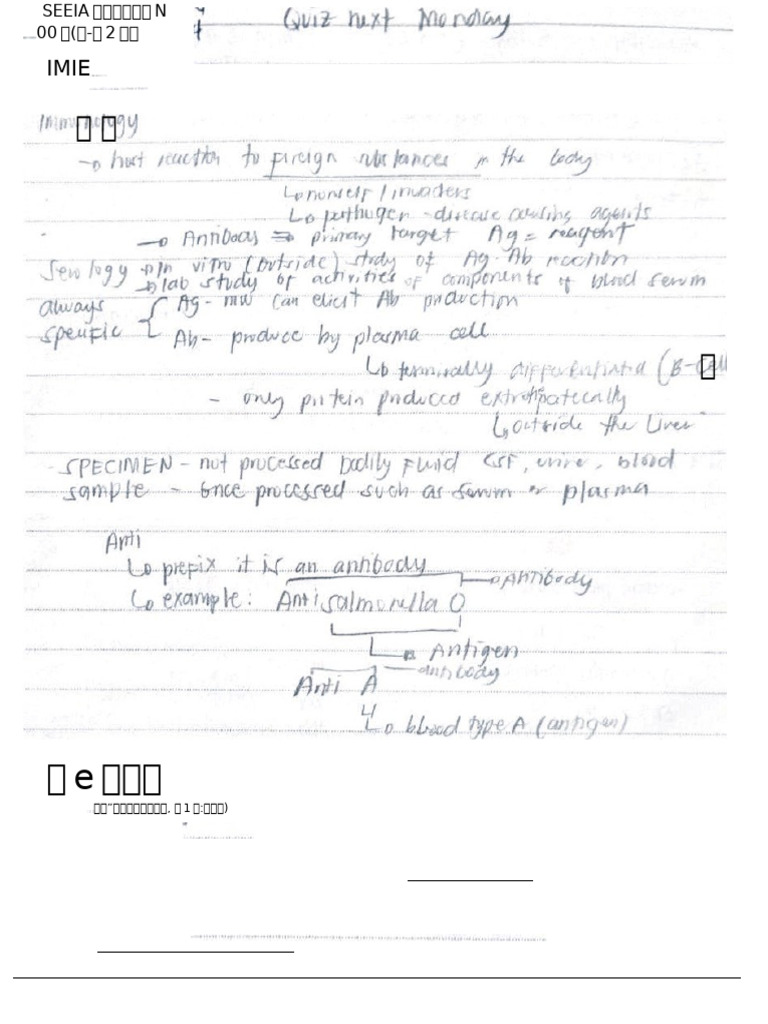 SEEIA N
00 (-2
IMIE
Quiz next Monday
Immunology
host reaction to foreign substances in the body
nonself / invaders
pathogen - disease causing agents
Antibody ⇒ primary target Ag = reagent
Serology In vitro (outside) study of Ag-Ab reaction
lab study of activities of components of blood serum
always
specific
Ag - mw can elicit Ab production
Ab - produce by plasma cell
terminally differentiated (B-cell
- only protein produced extrahepatically
outside the liver
SPECIMEN - not processed bodily fluid CSF, urine, blood
sample - once processed such as serum or plasma
Anti
prefix it is an antibody
Antibody
example: Anti salmonella O
Antigen
antibody
Anti A
blood type A (antigen)
e
1 :)